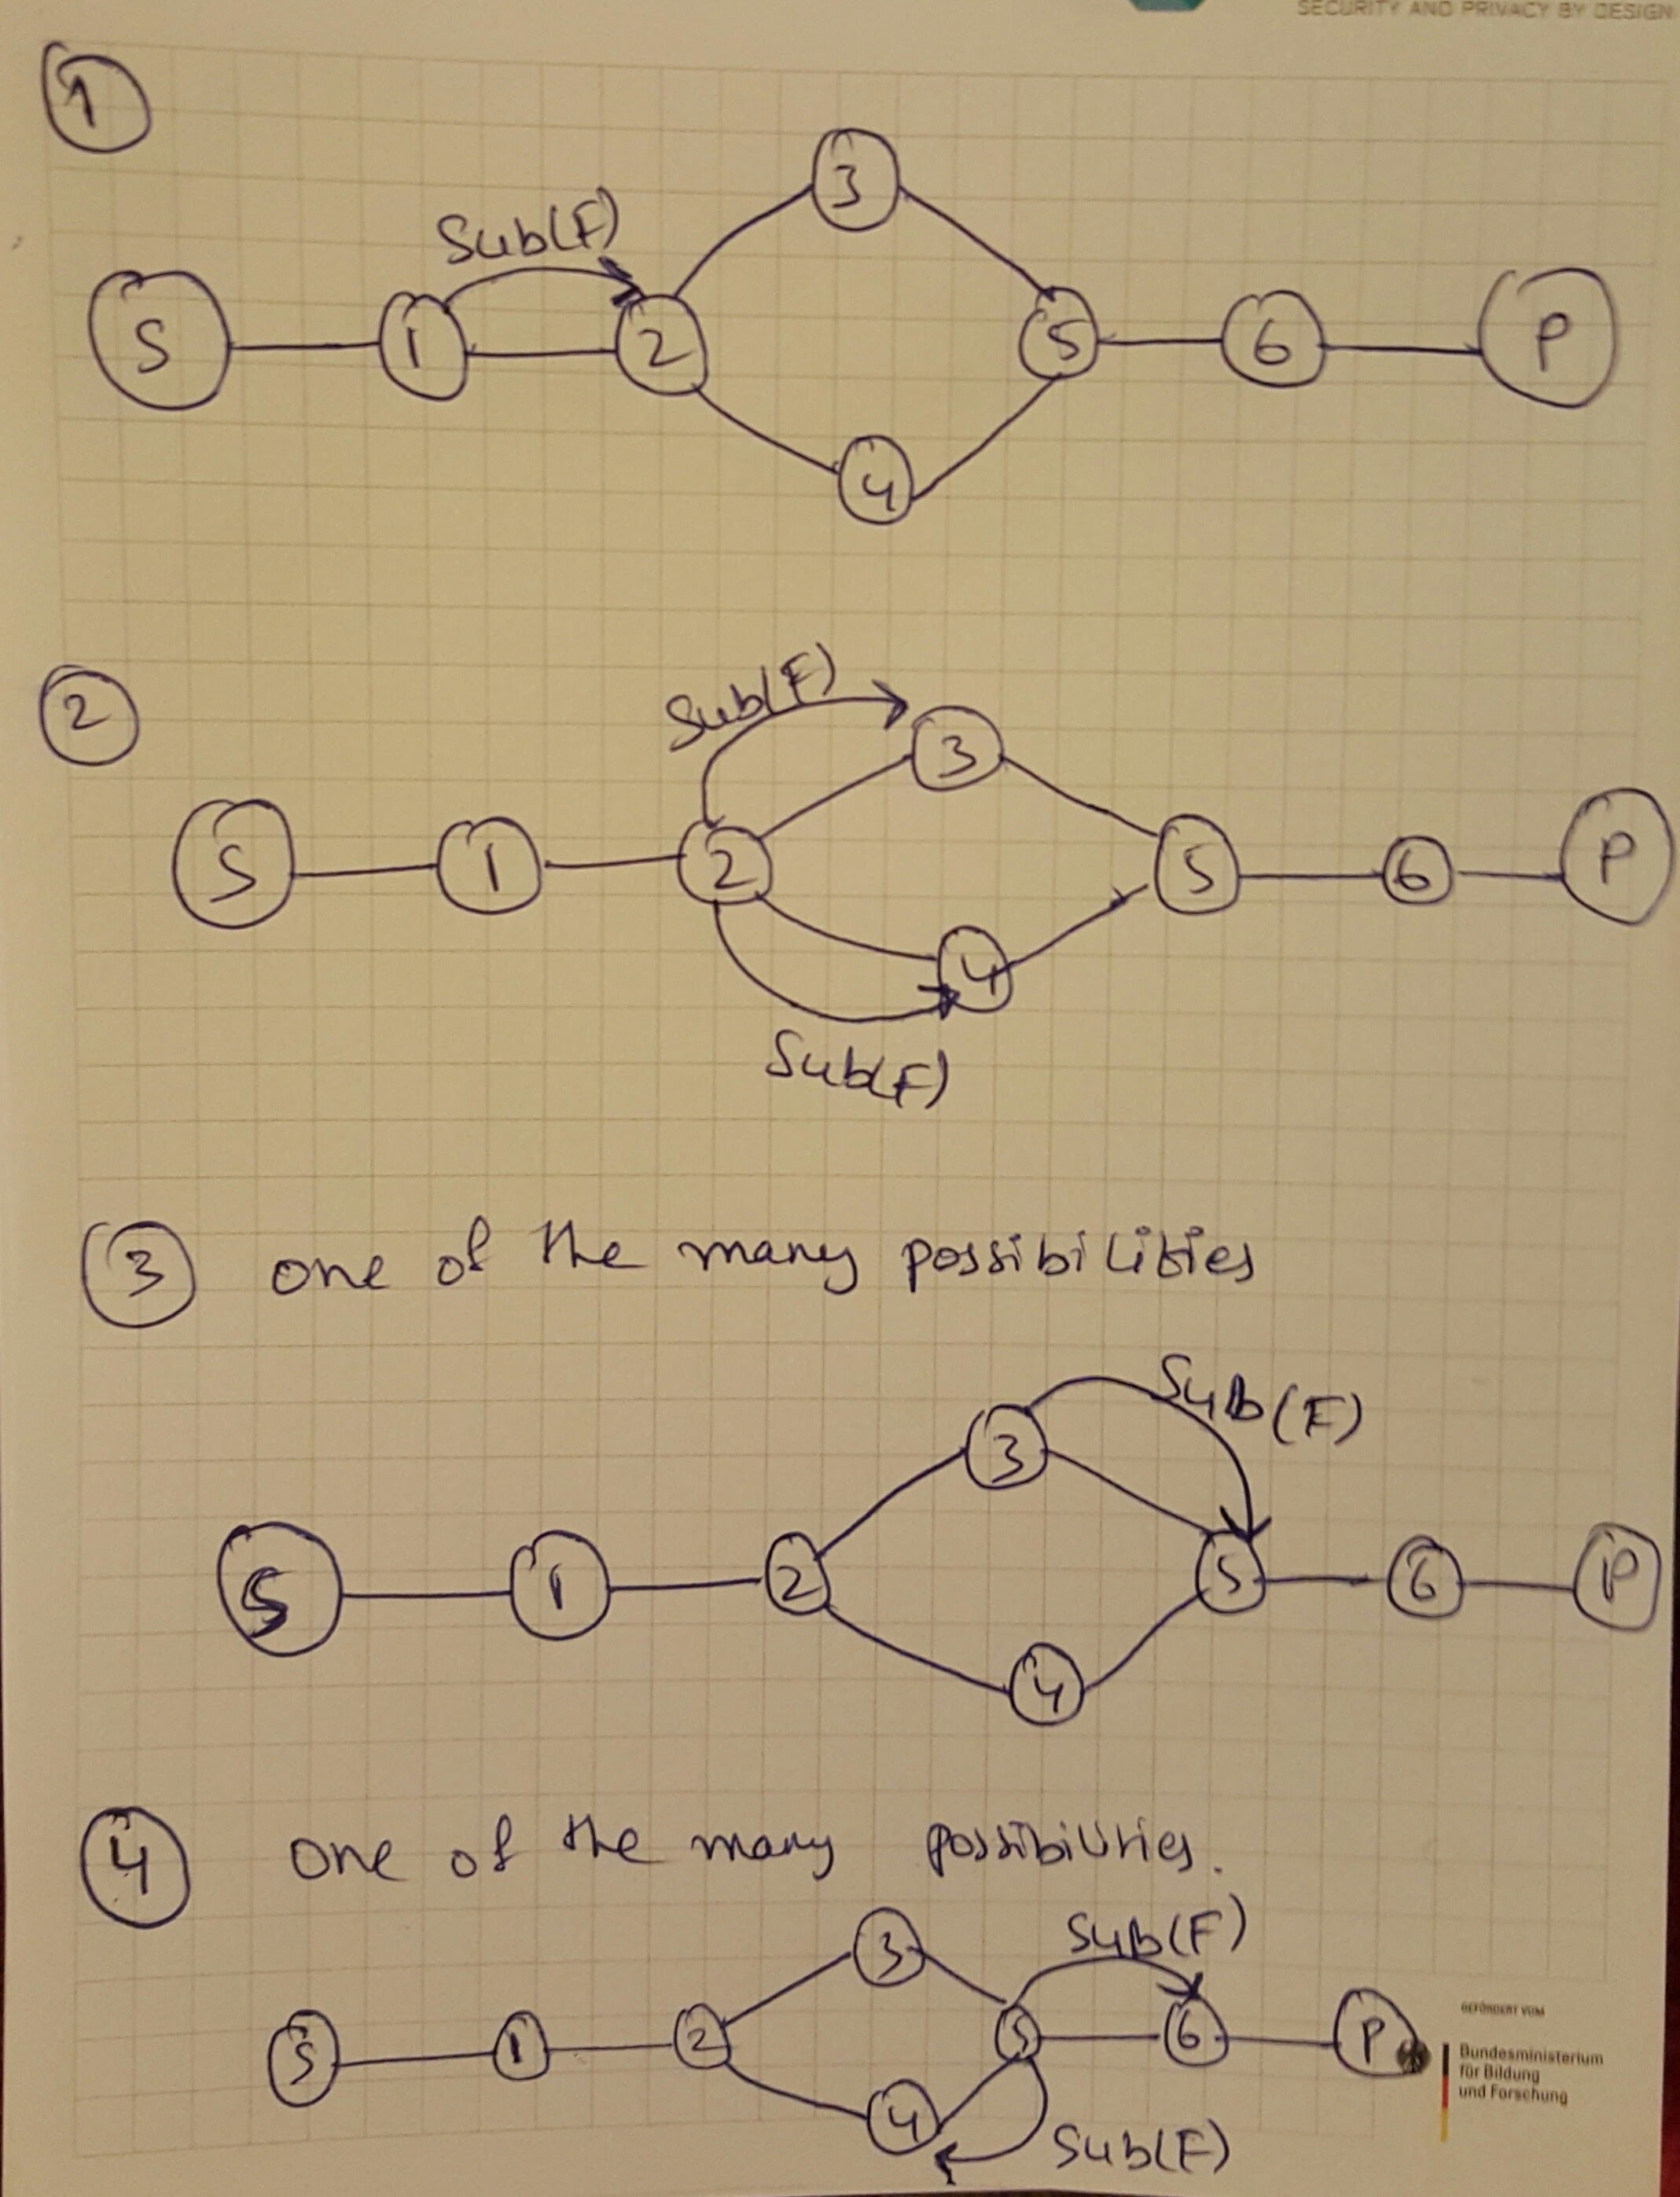 SECURITY AND PRIVACY BY DESIGN
1
3
Sub(F)
S 1 2 5 6 P
4
2
Sub(F)
3
S 1 2 5 6 P
4
Sub(F)
3 one of the many possibilities
Sub(F)
3
S 1 2 5 6 P
4
4 one of the many possibilities.
Sub(F)
3
S 1 2 5 6 P
4
Sub(F)
GEFÖRDERT VOM
Bundesministerium
für Bildung
und Forschung